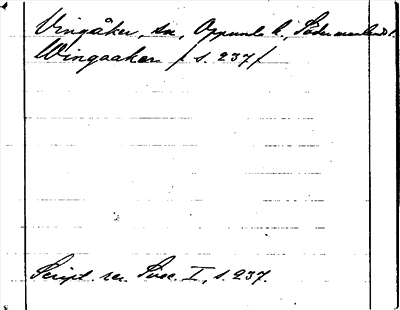 Vingåker, sn, Oppunda h., Södermanlands l.
Wingaaker / s. 237 /
Script. rer. Svec. I, s. 237.